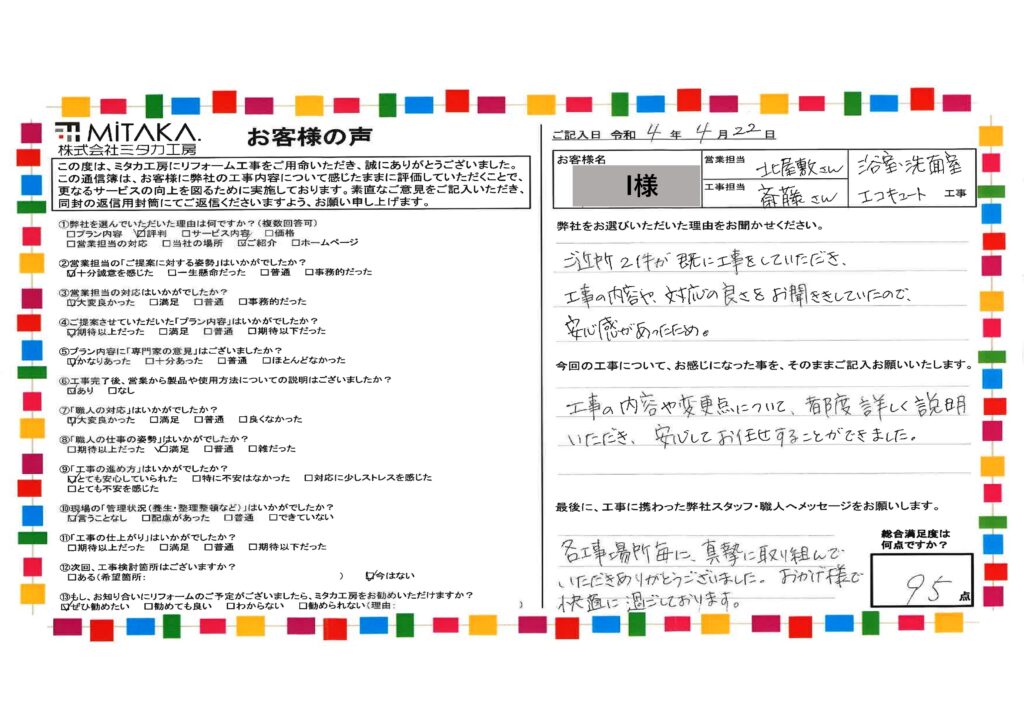 MiTAKA.
株式会社ミタカ工房
お客様の声
この度は、ミタカ工房にリフォーム工事をご用命いただき、誠にありがとうございました。
この通信簿は、お客様に弊社の工事内容について感じたままに評価していただくことで、
更なるサービスの向上を図るために実施しております。素直なご意見をご記入いただき、
同封の返信用封筒にてご返信くださいますよう、お願い申し上げます。
①弊社を選んでいただいた理由は何ですか?(複数回答可)
□プラン内容 ☑評判 □サービス内容 □価格
□営業担当の対応 □当社の場所 ☑ご紹介 □ホームページ
②営業担当の「ご提案に対する姿勢」はいかがでしたか?
☑十分誠意を感じた □一生懸命だった □普通 □事務的だった
③営業担当の対応はいかがでしたか?
☑大変良かった □満足 □普通 □事務的だった
④ご提案させていただいた「プラン内容」はいかがでしたか?
☑期待以上だった □満足 □普通 □期待以下だった
⑤プラン内容に「専門家の意見」はございましたか?
☑かなりあった □十分あった □普通 □ほとんどなかった
⑥工事完了後、営業から製品や使用方法についての説明はございましたか?
☑あり □なし
⑦「職人の対応」はいかがでしたか?
☑大変良かった □満足 □普通 □良くなかった
⑧「職人の仕事の姿勢」はいかがでしたか?
□期待以上だった ☑満足 □普通 □雑だった
⑨「工事の進め方」はいかがでしたか?
☑とても安心していられた □特に不安はなかった □対応に少しストレスを感じた
□とても不安を感じた
⑩現場の「管理状況(養生・整理整頓など)」はいかがでしたか?
☑言うことなし □配慮があった □普通 □できていない
⑪「工事の仕上がり」はいかがでしたか?
□期待以上だった □満足 □普通 □期待以下だった
⑫次回、工事検討箇所はございますか?
□ある(希望箇所: ) ☑今はない
⑬もし、お知り合いにリフォームのご予定がございましたら、ミタカ工房をお勧めいただけますか?
☑ぜひ勧めたい □勧めても良い □わからない □勧められない(理由: )
ご記入日 令和 4 年 4 月 22 日
お客様名 I様
営業担当 北屋敷さん
工事担当 斎藤さん
浴室・洗面室
エコキュート 工事
弊社をお選びいただいた理由をお聞かせください。
ご近所2件が既に工事をしていただき、
工事の内容や、対応の良さをお聞きしていたので、
安心感があったため。
今回の工事について、お感じになった事を、そのままご記入お願いいたします。
工事の内容や変更点について、都度詳しく説明
いただき、安心してお任せすることができました。
最後に、工事に携わった弊社スタッフ・職人へメッセージをお願いします。
各工事場所毎に、真摯に取り組んで
いただきありがとうございました。おかげ様で
快適に過ごしております。
総合満足度は
何点ですか?
95 点